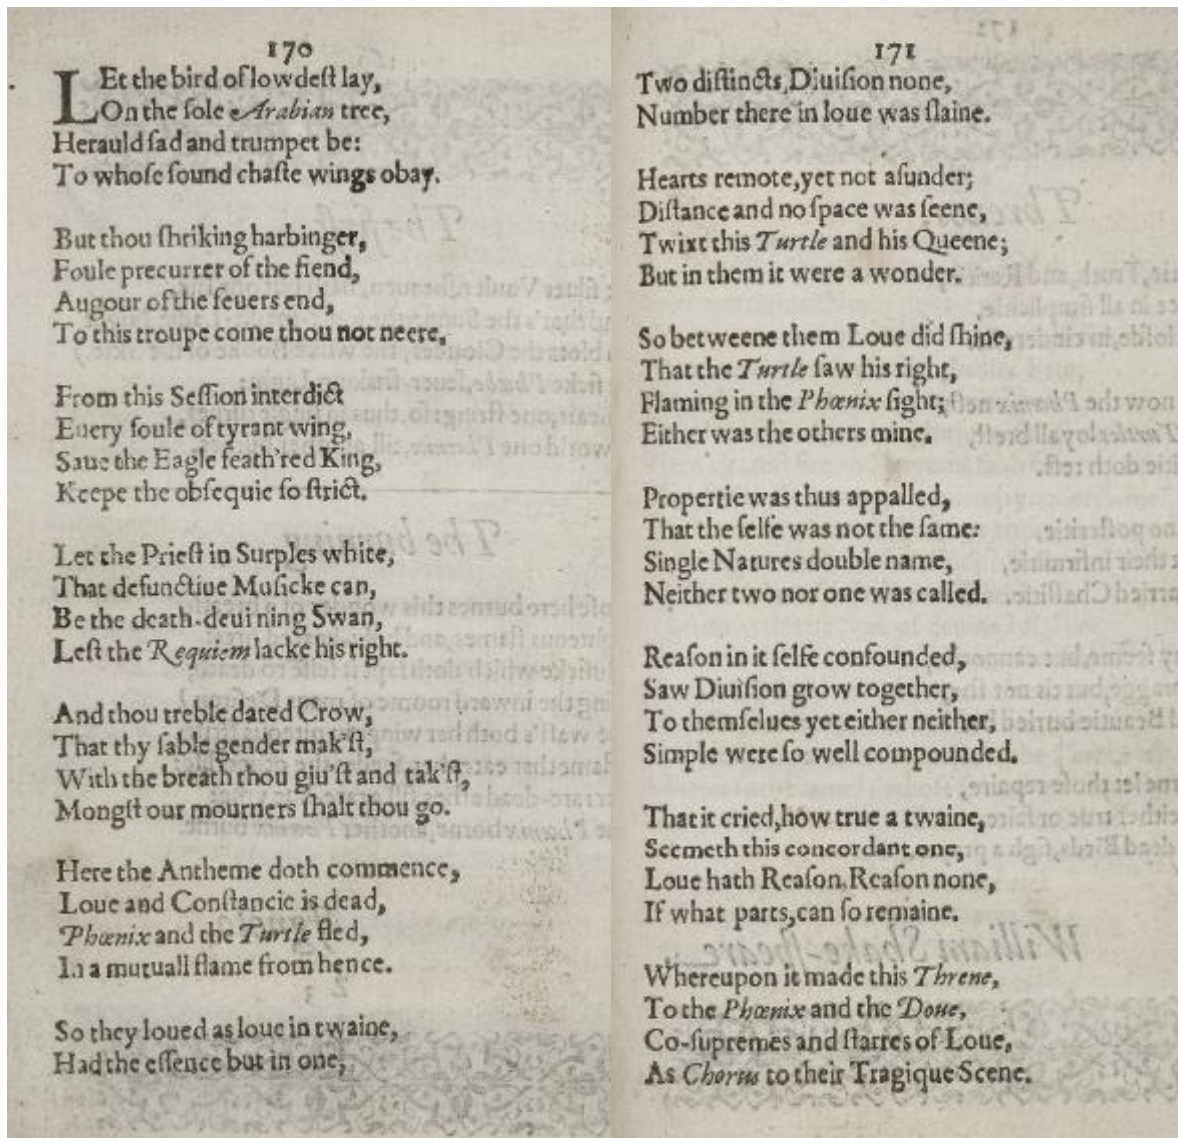 170
LEt the bird of lowdeſt lay,
On the ſole Arabian tree,
Herauld ſad and trumpet be:
To whoſe ſound chaſte wings obay.
But thou ſhriking harbinger,
Foule precurrer of the fiend,
Augour of the feuers end,
To this troupe come thou not neere.
From this Seſſion interdict
Euery foule of tyrant wing,
Saue the Eagle feath'red King,
Keepe the obſequie ſo ſtrict.
Let the Prieſt in Surples white,
That defunctiue Muſicke can,
Be the death-deuining Swan,
Leſt the Requiem lacke his right.
And thou treble dated Crow,
That thy ſable gender mak'ſt,
With the breath thou giu'ſt and tak'ſt,
Mongſt our mourners ſhalt thou go.
Here the Antheme doth commence,
Loue and Conſtancie is dead,
Phœnix and the Turtle fled,
In a mutuall flame from hence.
So they loued as loue in twaine,
Had the eſſence but in one,
171
Two diſtincts, Diuiſion none,
Number there in loue was ſlaine.
Hearts remote, yet not aſunder;
Diſtance and no ſpace was ſeene,
Twixt this Turtle and his Queene;
But in them it were a wonder.
So betweene them Loue did ſhine,
That the Turtle ſaw his right,
Flaming in the Phœnix ſight;
Either was the others mine.
Propertie was thus appalled,
That the ſelfe was not the ſame:
Single Natures double name,
Neither two nor one was called.
Reaſon in it ſelfe confounded,
Saw Diuiſion grow together,
To themſelues yet either neither,
Simple were ſo well compounded.
That it cried, how true a twaine,
Seemeth this concordant one,
Loue hath Reaſon, Reaſon none,
If what parts, can ſo remaine.
Whereupon it made this Threne,
To the Phœnix and the Doue,
Co-ſupremes and ſtarres of Loue,
As Chorus to their Tragique Scene.